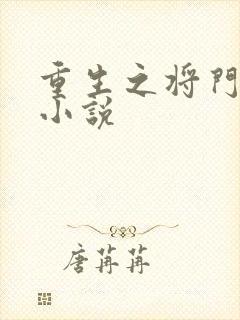 重生之将门
小说
唐苒苒